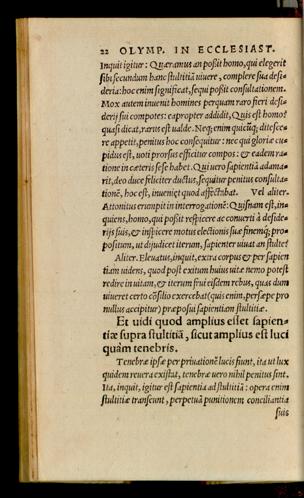 22 OLYMP. IN ECCLESIAST.
Inquit igitur: Quæramus an poßit homo, qui elegerit
sibi secundum hanc stultitiã uiuere, complere sua desi
deria: hoc enim significat, sequi poßit consultationem.
Mox autem inuenit homines perquam raro fieri desi
derij sui compotes: ea propter addidit, Quis est homo?
quasi dicat, rarus est ualde. Neq; enim quicũq; ditesce-
re appetit, penitus hoc consequitur: nec qui gloriæ cu-
pidus est, uoti prorsus efficitur compos: & eadem ra-
tione in cæteris sese habet. Qui uero sapientiã adama-
rit, deo duce feliciter ductus, sequitur penitus consulta-
tionẽ, hoc est, inueniet quod affectabat. Vel aliter.
Attonitus erumpit in interrogationẽ: Quisnam est, in-
quiens, homo, qui poßit respicere ac conuerti à deside-
rijs suis, & inspicere motus electionis suæ finemq; pro-
positum, ut dijudicet iterum, sapienter uiuat an stulte?
Aliter. Eleuatus, inquit, extra corpus & per sapien
tiam uidens, quod post exitum huius uitæ nemo potest
redire in uitam, & iterum frui eisdem rebus, quas dum
uiueret certo cõsilio exercebat (quis enim, persæpe pro
nullus accipitur) præposui sapientiam stultitiæ.
Et uidi quod amplius esset sapien-
tiæ supra stultitiã, sicut amplius est luci
quàm tenebris.
Tenebræ ipsæ per priuationẽ lucis fiunt, ita ut lux
quidem reuera existat, tenebræ uero nihil penitus sint.
Ita, inquit, igitur est sapientia ad stultitiã: opera enim
stultitiæ transeunt, perpetuã punitionem conciliantia
suis